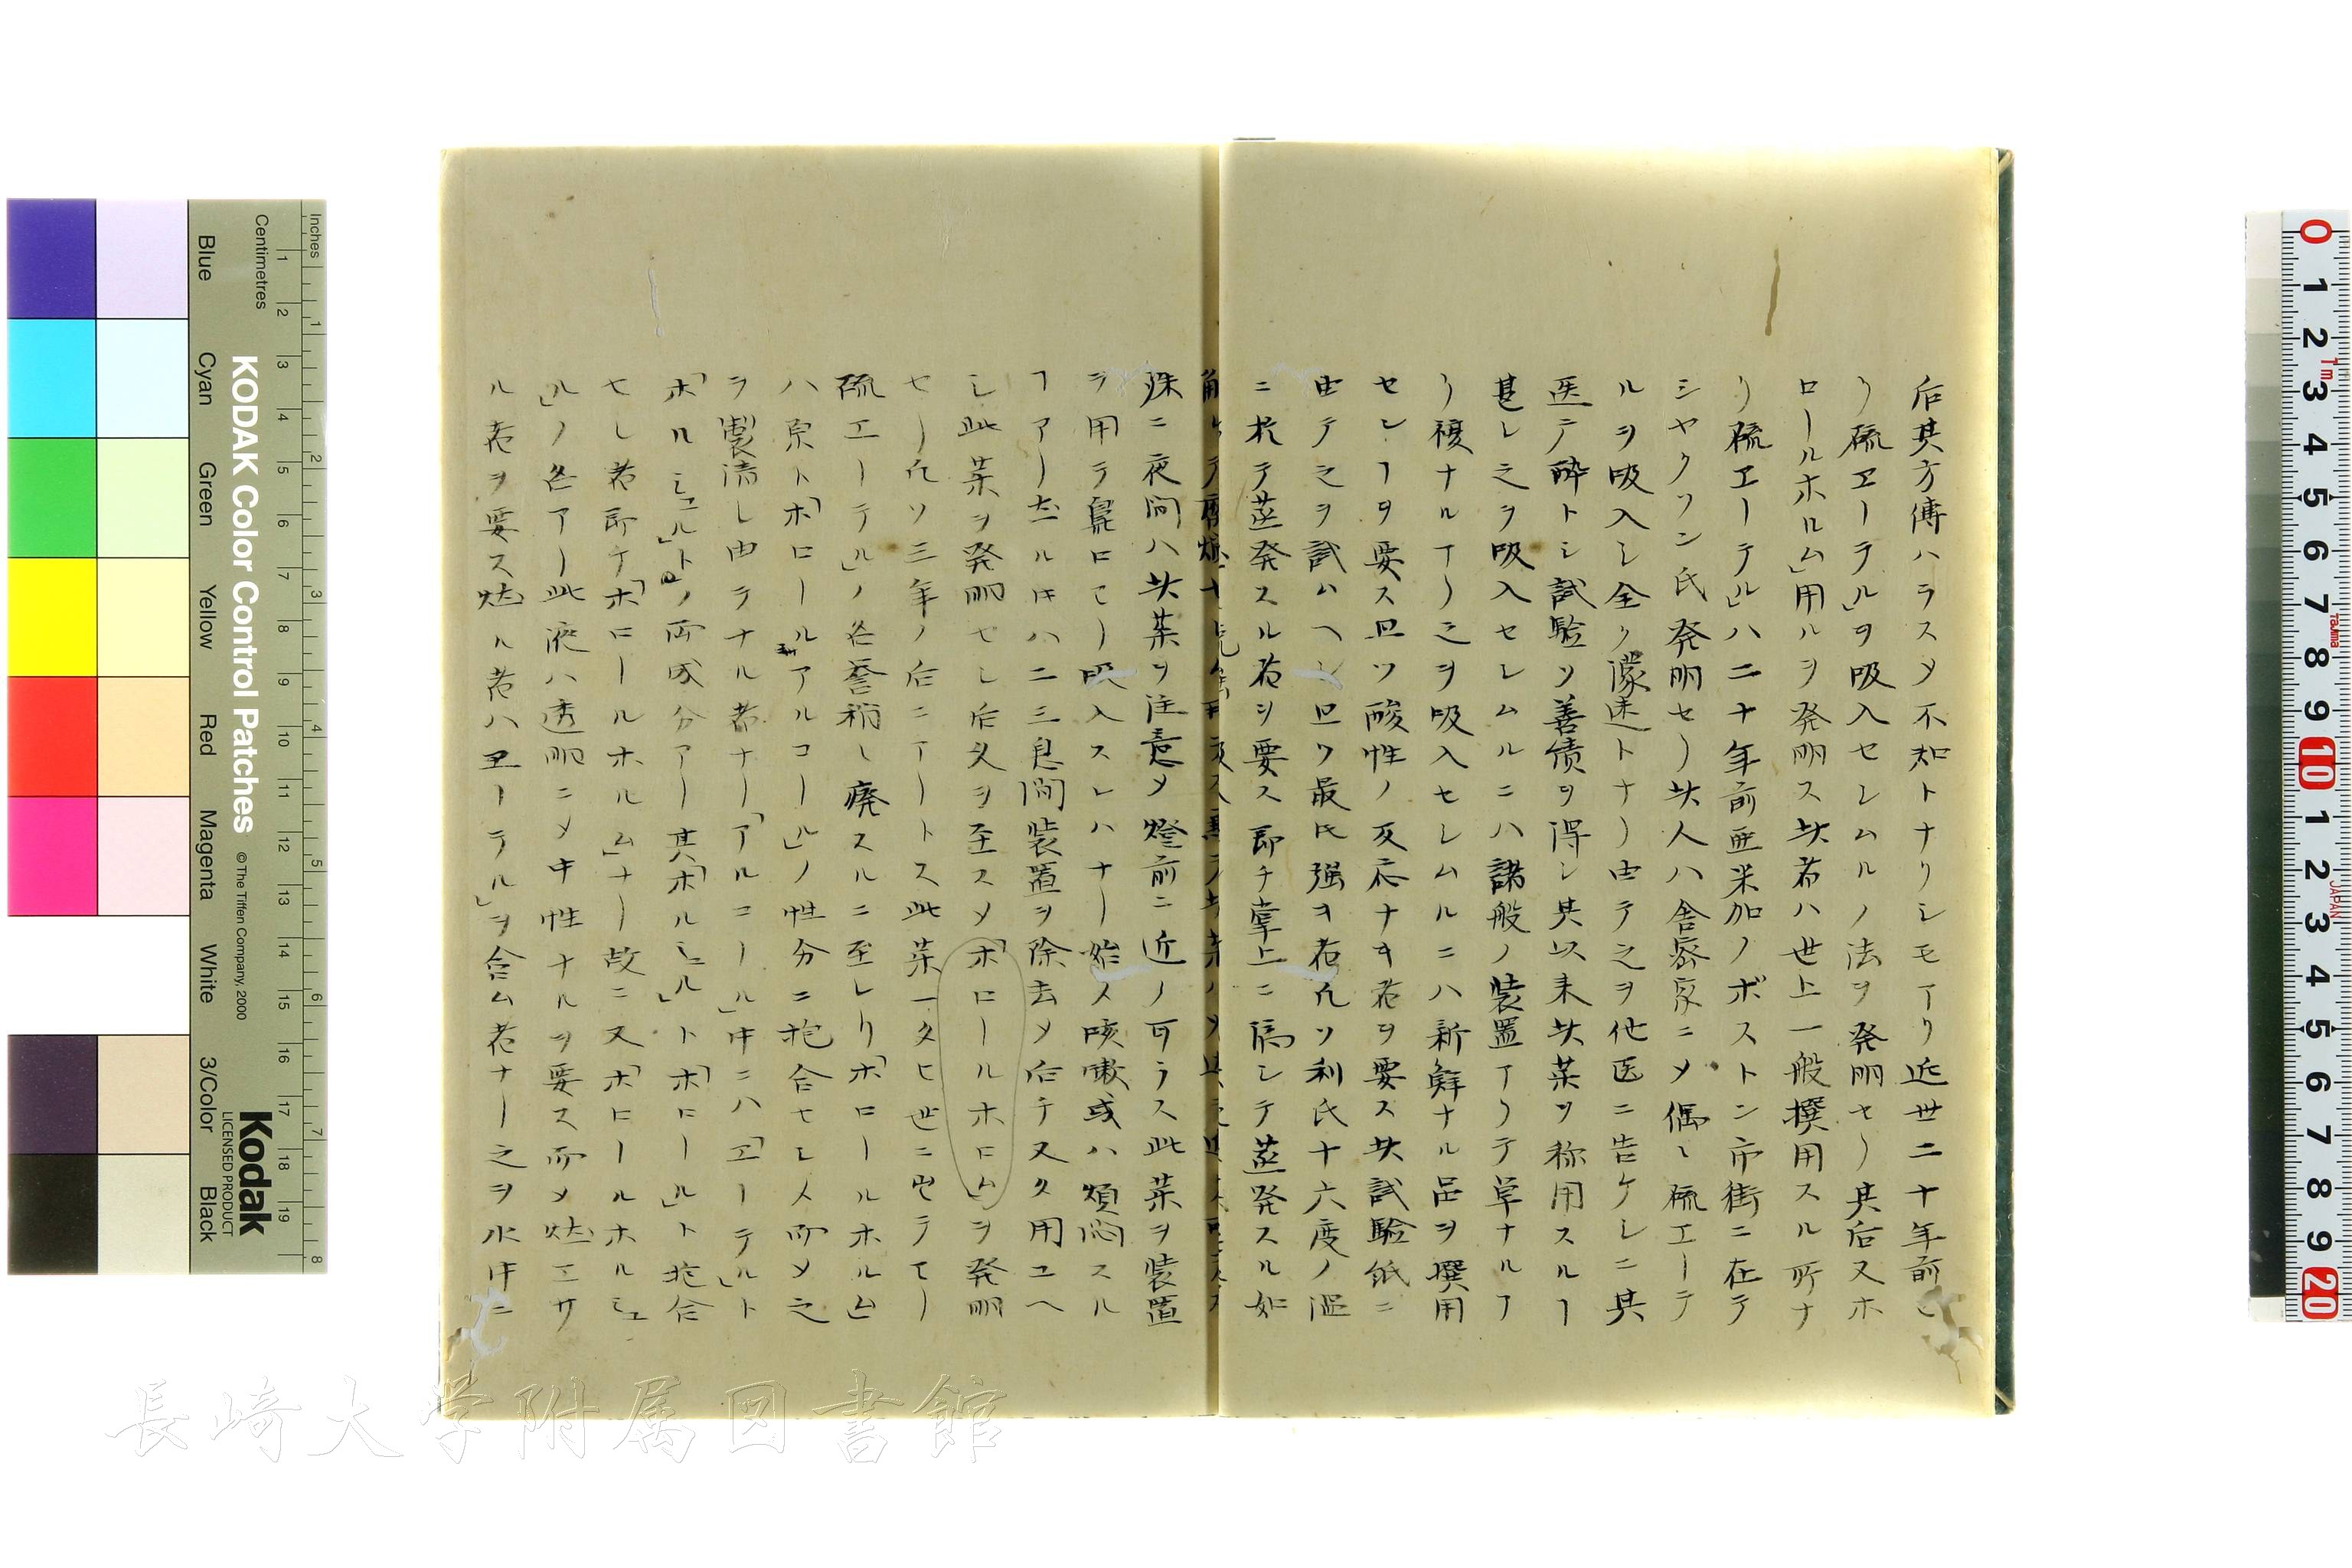 后其方傳ハラスメ不知トナリシモアリ近世二十年前
リ硫エーテル」ヲ吸入セシムルノ法ヲ発明セリ其后又ホ
ロールホルム」用ルヲ発明ス此者ハ世上一般撰用スル所ナ
リ硫エーテル」ハ二十年前亜米加ノボストン市街ニ在テ
シヤクソン氏発明セリ此人ハ舎密家ニメ偶々硫エーテ
ルヲ吸入シ全ク濛迷トナリ由テ之ヲ他医ニ告ケシニ其
医テ酔トシ試驗ソ善績ヲ得シ其以来此薬ヲ称用スルフ
甚シ之ヲ吸入セシムルニハ諸般ノ装置アリテ單ナルア
リ複ナルアリ之ヲ吸入セシムルニハ新鮮ナル品ヲ撰用
センフヲ要ス且ツ酸性ノ反応ナキ者ヲ要ス此試驗紙ニ
由テ之ヲ試ムヘシ且ツ最氏強キ者凡ソ利氏十六度ノ温
ニ於テ蒸発スル者ヲ要ス即チ掌上ニ滴シテ蒸発スル如
殊ニ夜間ハ此薬ヲ注意メ燈前ニ近ノ可ラス此薬ヲ装置
ヲ用テ鼻口ヨリ吸入スレハナリ始メ咳嗽或ハ煩悶スル
フアリ虽ルモハ二三息間装置ヲ除去メ后チ又タ用ユヘ
シ此薬ヲ発明セシ后久ヲ至スメ「ホロールホロム」ヲ発明
セリ凡ソ三年ノ后ニアリトス此薬一タヒ世ニ出テヨリ
硫エーテル」ノ名誉稍々廃スルニ至レリ「ホロールホルム
ハ原ト「ホロール」アルコール」ノ性分ニ抱合セシメ而メ之
ヲ製清シ由テナル者ナリ「アルコール」中ニハ「エーテル」ト
「ホルミユル」トノ両成分アリ其「ホルミル」ト「ホロール」ト抱合
セシ者即チ「ホロールホルム」ナリ故ニ又「ホロールホルミユ
ル」ノ名アリ此液ハ透明ニメ中性ナルヲ要ス而メ燃エサ
ル者ヲ要ス燃ル者ハ且ーテル」ヲ含ム者ナリ之ヲ水中ニ
Inches
Centimetres
KODAK Color Control Patches
© The Tiffen Company, 2000
Kodak
LICENSED PRODUCT
Blue
Cyan
Green
Yellow
Red
Magenta
White
3/Color
Black
長崎大学附属図書館